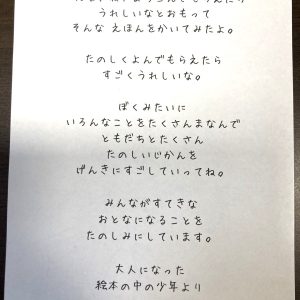 うれしいなとおもって
そんな えほんをかいてみたよ。
たのしくよんでもらえたら
すごくうれしいな。
ぼくみたいに
いろんなことをたくさんまなんで
ともだちとたくさん
たのしいじかんを
げんきにすごしていってね。
みんながすてきな
おとなになることを
たのしみにしています。
大人になった
絵本の中の少年より